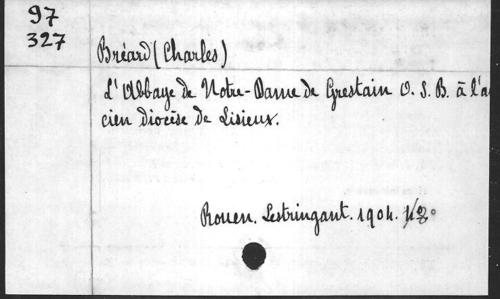 97
327
Bréard (Charles)
L'Abbaye de Notre-Dame de Grestain O. S. B. à l'an
cien diocèse de Lisieux.
Rouen. Lestringant. 1904.